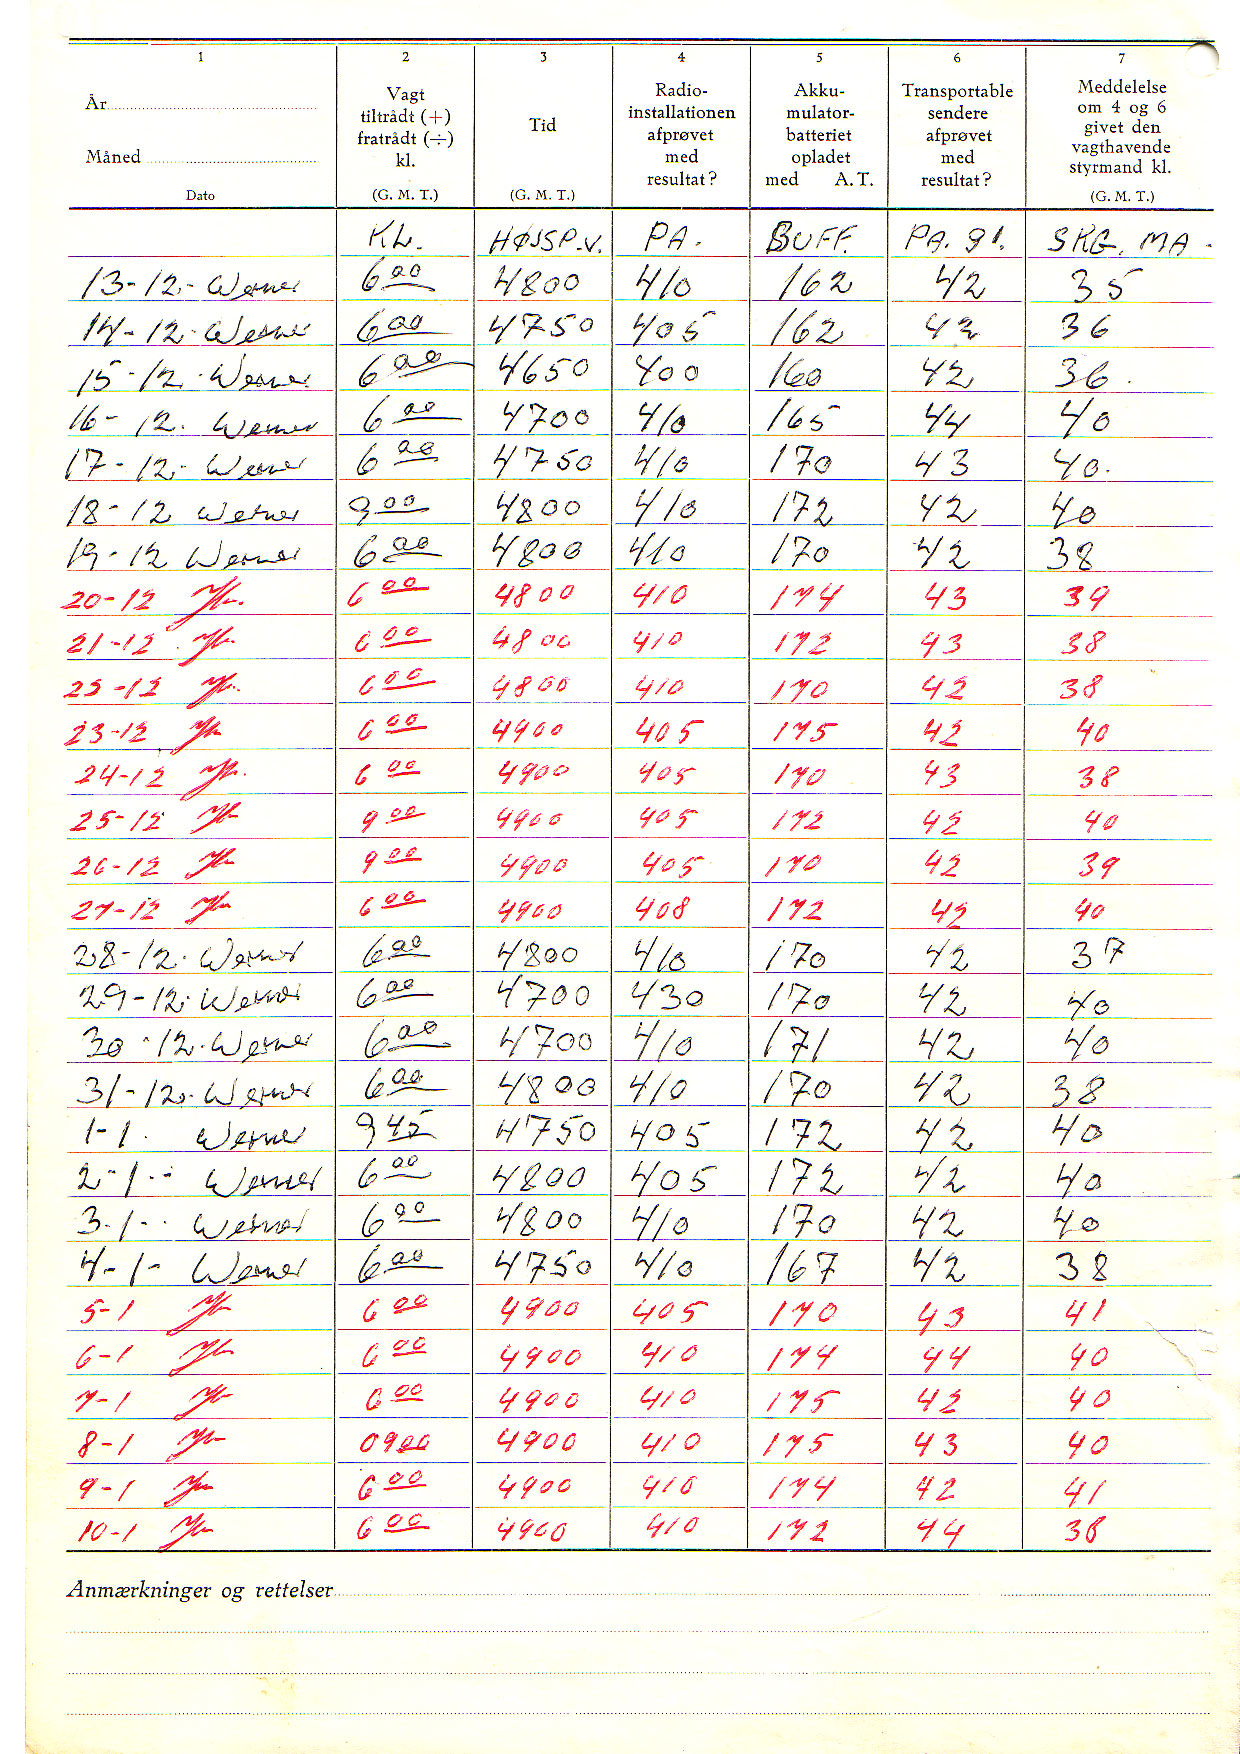 1 2 3 4 5 6 7
År Vagt tiltrådt (+) fratrådt (÷) kl. Tid Radio-installationen afprøvet med resultat? Akku-mulator-batteriet opladet med A.T. Transportable sendere afprøvet med resultat? Meddelelse om 4 og 6 givet den vagthavende styrmand kl.
Måned
Dato (G. M. T.) (G. M. T.) (G. M. T.)
KL. HØJSP.V. PA. BUFF. PA. g1. SKG. MA.
13-12.- Werner 6 00 4800 410 162 42 35
14-12. Werner 6 00 4750 405 162 42 36
15-12. Werner 6 00 4650 400 160 42 36.
16-12. Werner 6 00 4700 410 165 44 40
17-12. Werner 6 00 4750 410 170 43 40.
18-12 Werner 9 00 4800 410 172 42 40
19-12 Werner 6 00 4800 410 170 42 38
20-12 6 00 4800 410 174 43 39
21-12 6 00 4800 410 172 43 38
22-12 6 00 4800 410 170 42 38
23-12 6 00 4900 405 175 42 40
24-12 6 00 4900 405 170 43 38
25-12 9 00 4900 405 172 42 40
26-12 9 00 4900 405 170 42 39
27-12 6 00 4900 408 172 42 40
28-12. Werner 6 00 4800 410 170 42 37
29-12. Werner 6 00 4700 430 170 42 40
30-12. Werner 6 00 4700 410 171 42 40
31-12. Werner 6 00 4800 410 170 42 38
1-1. Werner 9 45 4750 405 172 42 40
2-1.- Werner 6 00 4800 405 172 42 40
3-1-. Werner 6 00 4800 410 170 42 40
4-1- Werner 6 00 4750 410 167 42 38
5-1 6 00 4900 405 170 43 41
6-1 6 00 4900 410 174 44 40
7-1 6 00 4900 410 175 42 40
8-1 0900 4900 410 175 43 40
9-1 6 00 4900 410 174 42 41
10-1 6 00 4900 410 172 44 38
Anmærkninger og rettelser